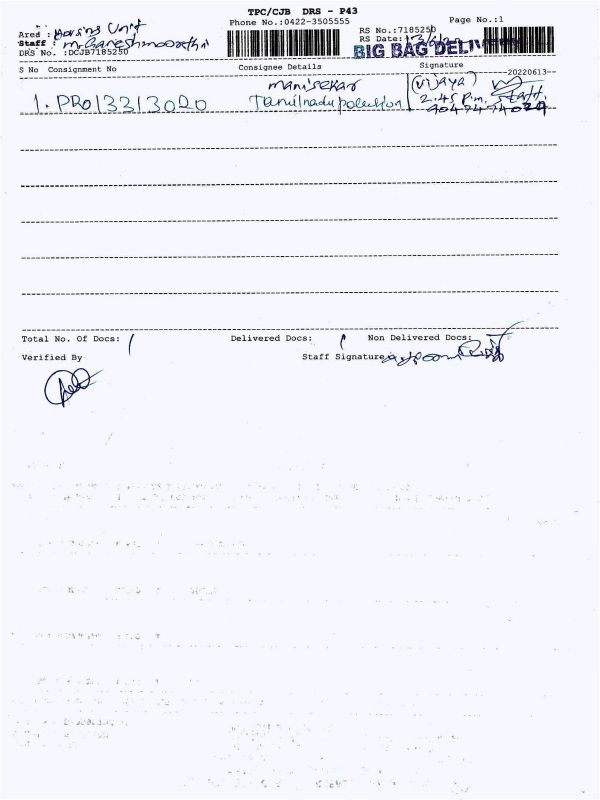 TPC/CJB DRS - P43
Phone No.:0422-3505555
Page No.:1
Area :
Staff : Mr. Ganeshmoorthi
DRS No. :DCJB7185250
RS No.:7185250
RS Date:
BIG BAG DELIVERY
S No Consignment No Consignee Details Signature
--20220613--
1. PRO13313020
Manisekar
Tamilnadu pollution
(Vijaya)
2.45 P.m. Staff.
Total No. Of Docs: 1 Delivered Docs: 1 Non Delivered Docs:
Verified By Staff Signature